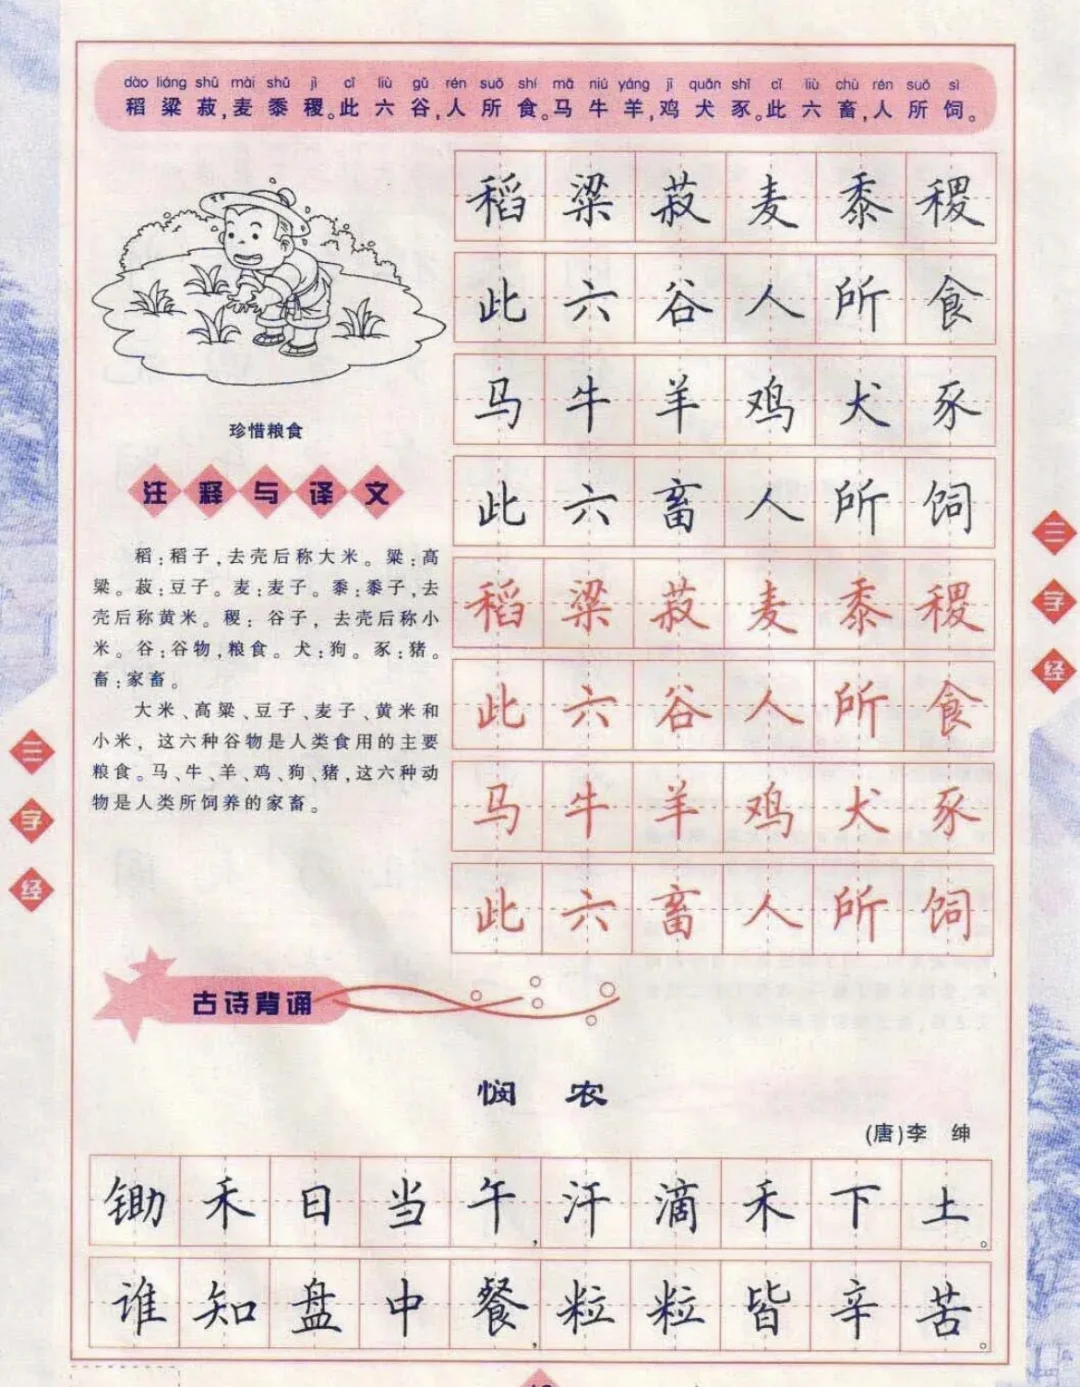 dào liáng shū mài shǔ jì cǐ liù gǔ rén suǒ shí mǎ niú yáng jī quǎn shǐ cǐ liù chù rén suǒ sì
稻粱菽,麦黍稷。此六谷,人所食。马牛羊,鸡犬豕。此六畜,人所饲。
稻粱菽麦黍稷
此六谷人所食
马牛羊鸡犬豕
此六畜人所饲
稻粱菽麦黍稷
此六谷人所食
马牛羊鸡犬豕
此六畜人所饲
珍惜粮食
注释与译文
稻:稻子,去壳后称大米。粱:高
粱。菽:豆子。麦:麦子。黍:黍子,去
壳后称黄米。稷:谷子,去壳后称小
米。谷:谷物,粮食。犬:狗。豕:猪。
畜:家畜。
大米、高粱、豆子、麦子、黄米和
小米,这六种谷物是人类食用的主要
粮食。马、牛、羊、鸡、狗、猪,这六种动
物是人类所饲养的家畜。
三字经
三字经
古诗背诵
悯 农
(唐)李 绅
锄禾日当午,汗滴禾下土。
谁知盘中餐,粒粒皆辛苦。